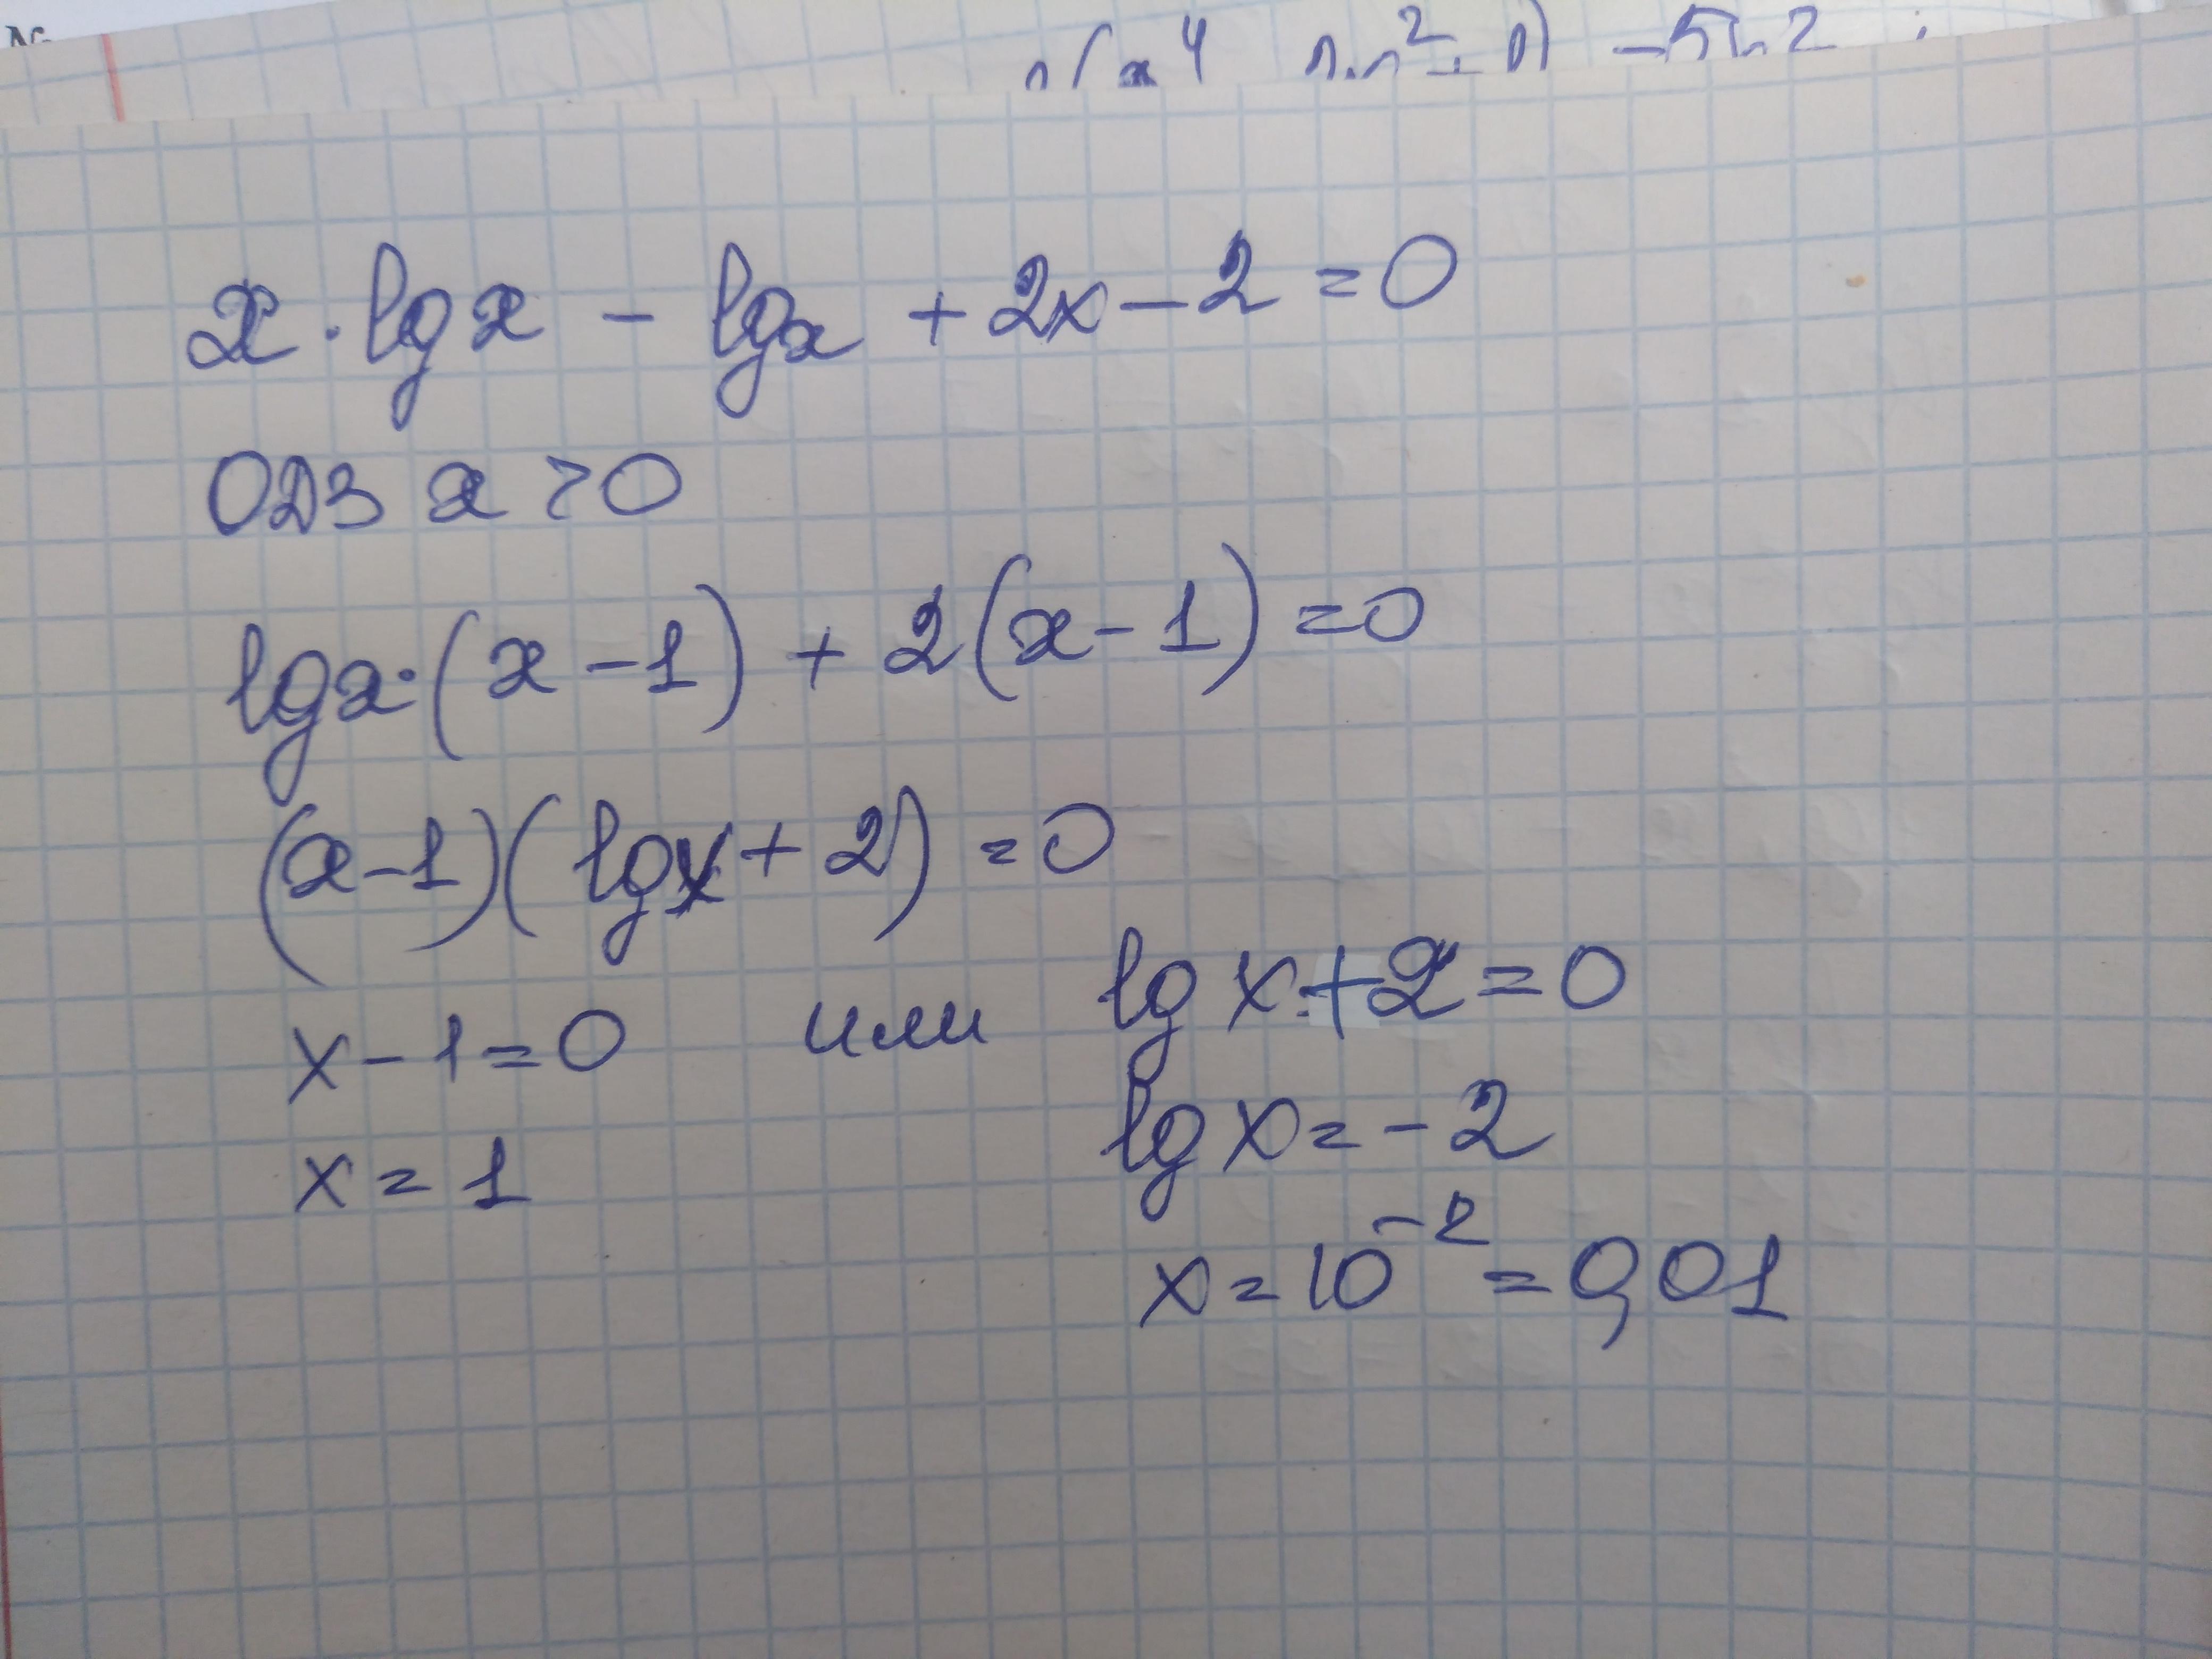 x · lg x - lg x + 2x - 2 = 0
ОДЗ x > 0
lg x · (x - 1) + 2(x - 1) = 0
(x - 1)(lg x + 2) = 0
x - 1 = 0 или lg x + 2 = 0
x = 1 lg x = - 2
x = 10⁻² = 0,01